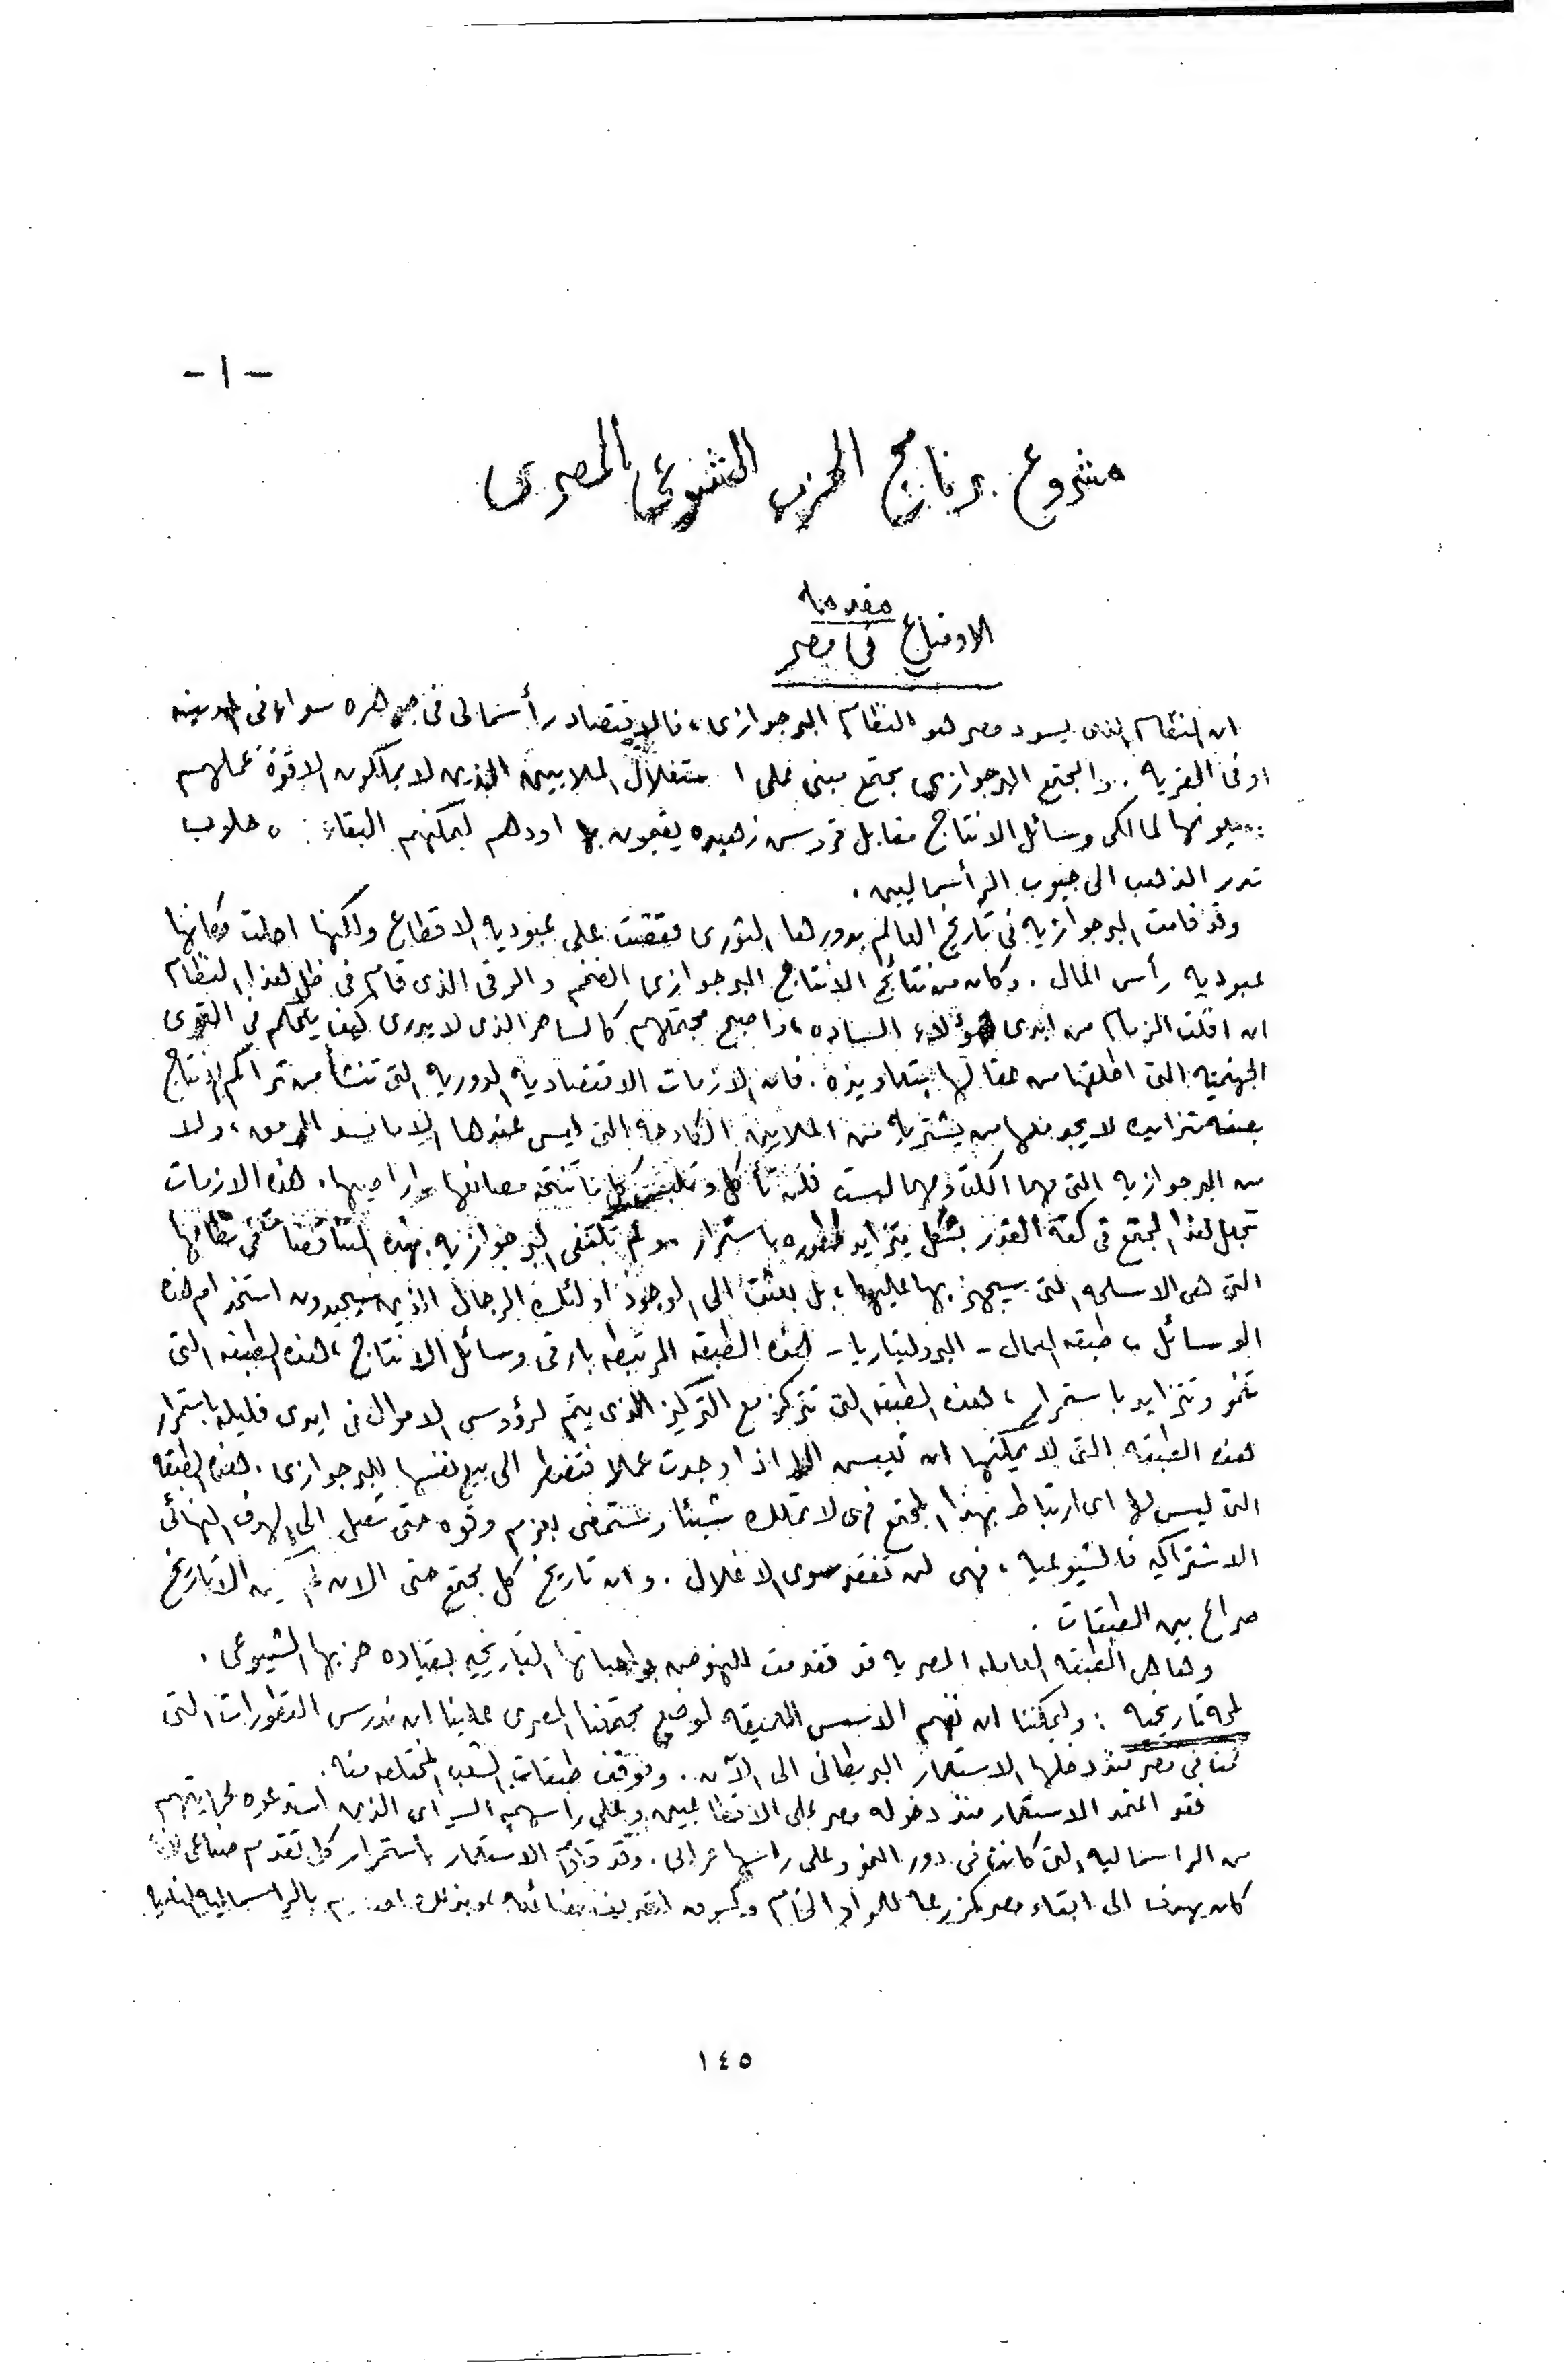 - ١ -
مشروع برنامج الحزب الشيوعى المصرى
مقدمه
الاوضاع فى مصر
ان النظام الذى يسود مصر هو النظام البرجوازى، فالاقتصاد رأسمالى فى جوهره سواء فى المدينه
او فى القريه . والمجتمع البرجوازى مجتمع مبنى على استغلال الملايين الذين لا يملكون الا قوة عملهم
يبيعونها لمالكى وسائل الانتاج مقابل قروس زهيده يقيمون بها اودهم ليمكنهم البقاء حلوب
تدر الذهب الى جيوب الرأسماليين .
وقد قامت البرجوازيه فى تاريخ العالم بدورها الثورى فقضت على عبوديه الاقطاع ولكنها احلت مكانها
عبوديه رأس المال . وكان من نتائج الانتاج البرجوازى الضخم والرقى الذى قام فى ظل هذا النظام
ان افلت الزمام من ايدى هؤلاء الساده، واصبح مجتمعهم كالساحر الذى لا يدرى كيف يتحكم فى القوى
الجهنميه التى اطلقها من عقالها بتعاويذه . فان الازمات الاقتصاديه الدوريه التى تنشأ من تراكم الانتاج
بصفه متزايده لا يجد معها من يشتريه من الملايين الكادحه التى ليس عندها الا ما يسد الرمق، ولا
من البرجوازيه التى مهما اكلت ومهما لبست فلن تأكل وتلبس كل ما تنتجه مصانعها واراضيها . هذه الازمات
تجعل هذا المجتمع فى كفة القدر بشكل يتزايد خطوره باستمرار . ولم تكتفى البرجوازيه بهذه المتناقضات فى نظامها
التى هى الاسلحه التى سيجهز بها عليها، بل بعثت الى الوجود اولئك الرجال الذين سيجيدون استخدام هذه
الوسائل ، طبقه العمال - البروليتاريا - هذه الطبقه المرتبطه بارقى وسائل الانتاج ، هذه الطبقه التى
تنمو وتتزايد باستمرار ، هذه الطبقه التى تتركز مع التركيز الذى يتم لرؤوس الاموال فى ايدى قليله باستمرار
هذه الطبقه التى لا يمكنها ان تعيش الا اذا وجدت عملا فتضطر الى بيع نفسها للبرجوازى . هذه الطبقه
التى ليس لها اى ارتباط بهذا المجتمع فهى لا تملك شيئا وستمضى بعزم وقوه حتى تصل الى الهدف النهائى
الاشتراكيه فالشيوعيه ، فهى لن تفقد سوى الاغلال . وان تاريخ كل مجتمع حتى الان لم يكن الا تاريخ
صراع بين الطبقات .
وها هى الطبقه العامله المصريه قد تقدمت للنهوض بواجباتها التاريخيه بقياده حزبها الشيوعى .
لمحه تاريخيه : وليمكننا ان نفهم الاسس العميقه لوضع مجتمعنا المصرى علينا ان ندرس التطورات التى
تمت فى مصر منذ دخلها الاستعمار البريطانى الى الآن . وموقف طبقات الشعب المختلفه منه .
لقد اعتمد الاستعمار منذ دخوله مصر على الاقطاعيين وعلى رأسهم السراى الذين استدعوه لحمايتهم
من الراسماليه التى كانت فى دور النمو وعلى راسها عرابى . وقد قاوم الاستعمار باستمرار كل تقدم صناعى
كان يهدف الى ابقاء مصر كمزرعه للمواد الخام وكسوق لتصريف بضائعه ، وبذلك بالراسماليه
١٤٥